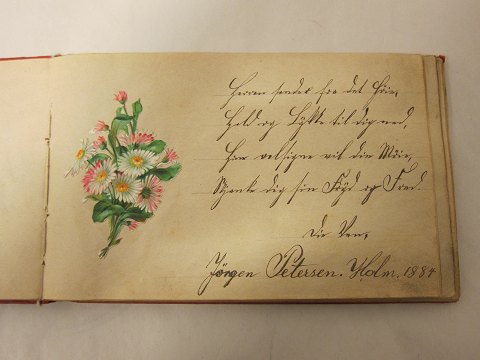 Herren sender fra det Høie,
Held og Lykke til dig ned,
Han velsigne vil din Møie,
Skjænke dig sin Fryd og Fred.
Din Ven,
Jörgen Petersen. Holm. 1884